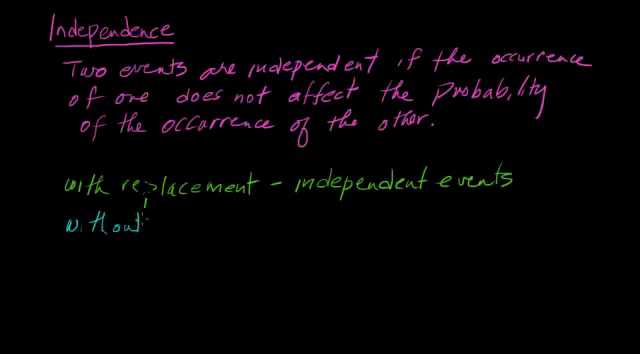 Independence
Two events are independent if the occurrence
of one does not affect the probability
of the occurrence of the other.
with replacement - independent events
without